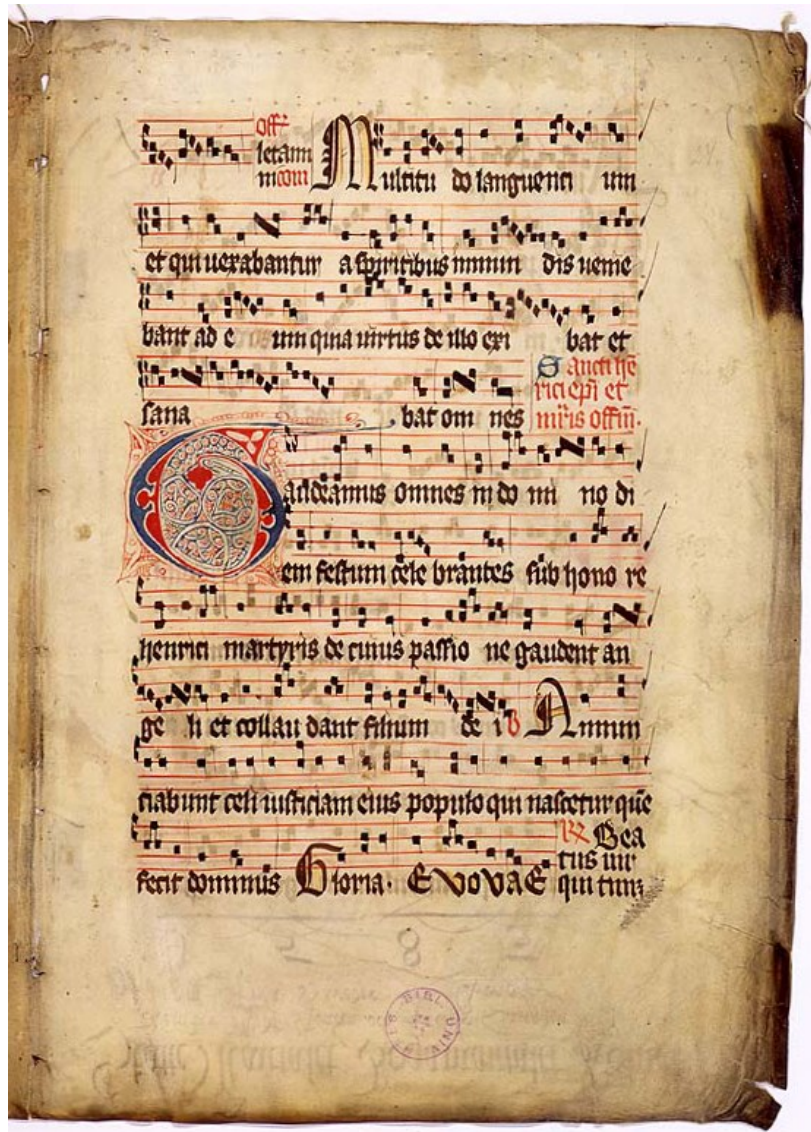 off
letami
ni com Multitu do languenti um
et qui uexabantur a spiritibus inmun dis uenie
bant ad e um quia uirtus de illo exi bat et
sana bat om nes
Sancti hē
rici ep̄i et
mr̄is offm̄.
Gaudeamus omnes in do mi no di
em festum cele brantes sub hono re
henrici martyris de cuius passio ne gaudent an
ge li et collau dant filium de i Annun
ciabunt celi iusticiam eius populo qui nascetur quē
fecit dominus Gloria. EVOVAE
Bea
tus uir
qui tim